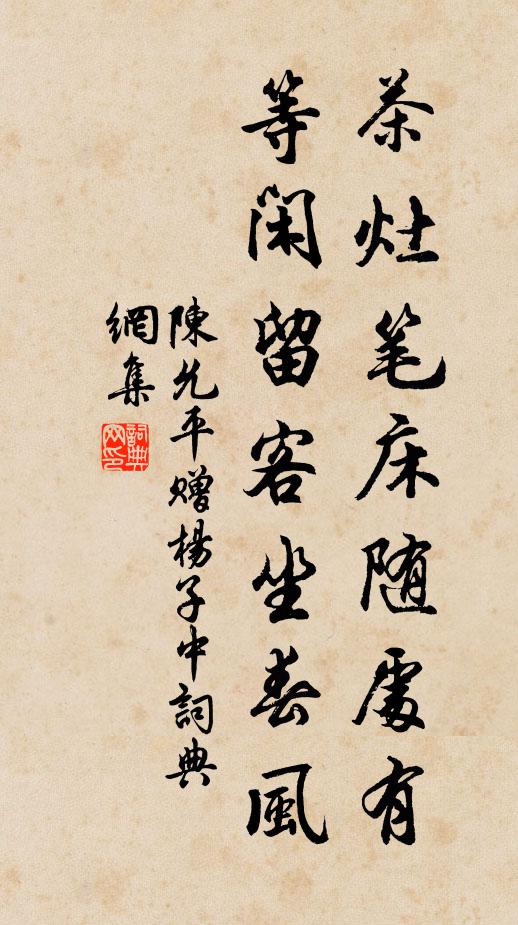 茶灶笔床随處有
等閑留客坐春風
陳允平贈楊子中詞典
網集
詞典
网印